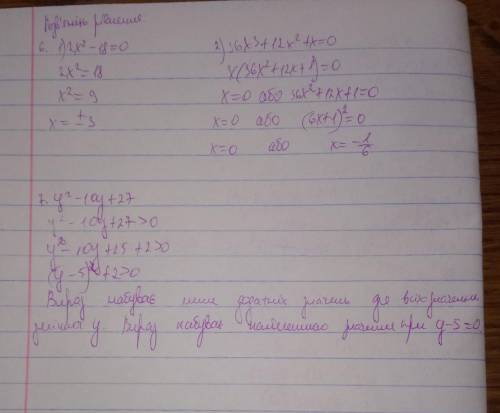 Розв'яжіть рівняння.
6. 1) 2x² - 18 = 0
2x² = 18
x² = 9
x = ± 3
2) 36x³ + 12x² + x = 0
x(36x² + 12x + 1) = 0
x = 0 або 36x² + 12x + 1 = 0
x = 0 або (6x + 1)² = 0
x = 0 або x = -1/6
7. y² - 10y + 27
y² - 10y + 27 > 0
y² - 10y + 25 + 2 > 0
(y - 5)² + 2 > 0
Вираз набуває лише додатніх значень для всіх значень
змінної y. Вираз набуває найменшого значення при y - 5 = 0